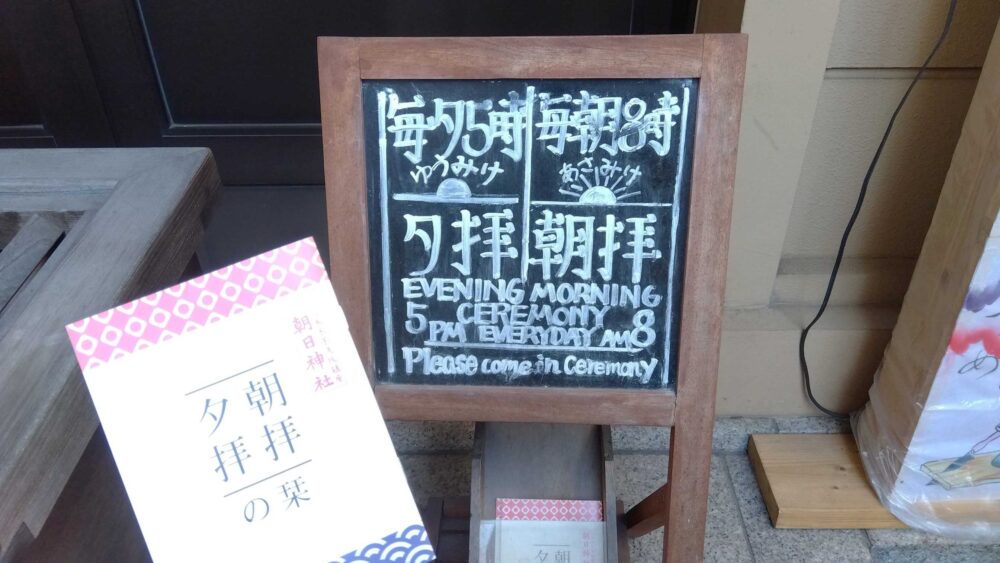 毎朝8時
あさみけ
朝拝
毎夕5時
ゆうみけ
夕拝
EVENING MORNING
CEREMONY
5 PM EVERYDAY AM 8
Please come in Ceremony
朝日神社
朝拝
夕拝
の栞
朝
夕
め